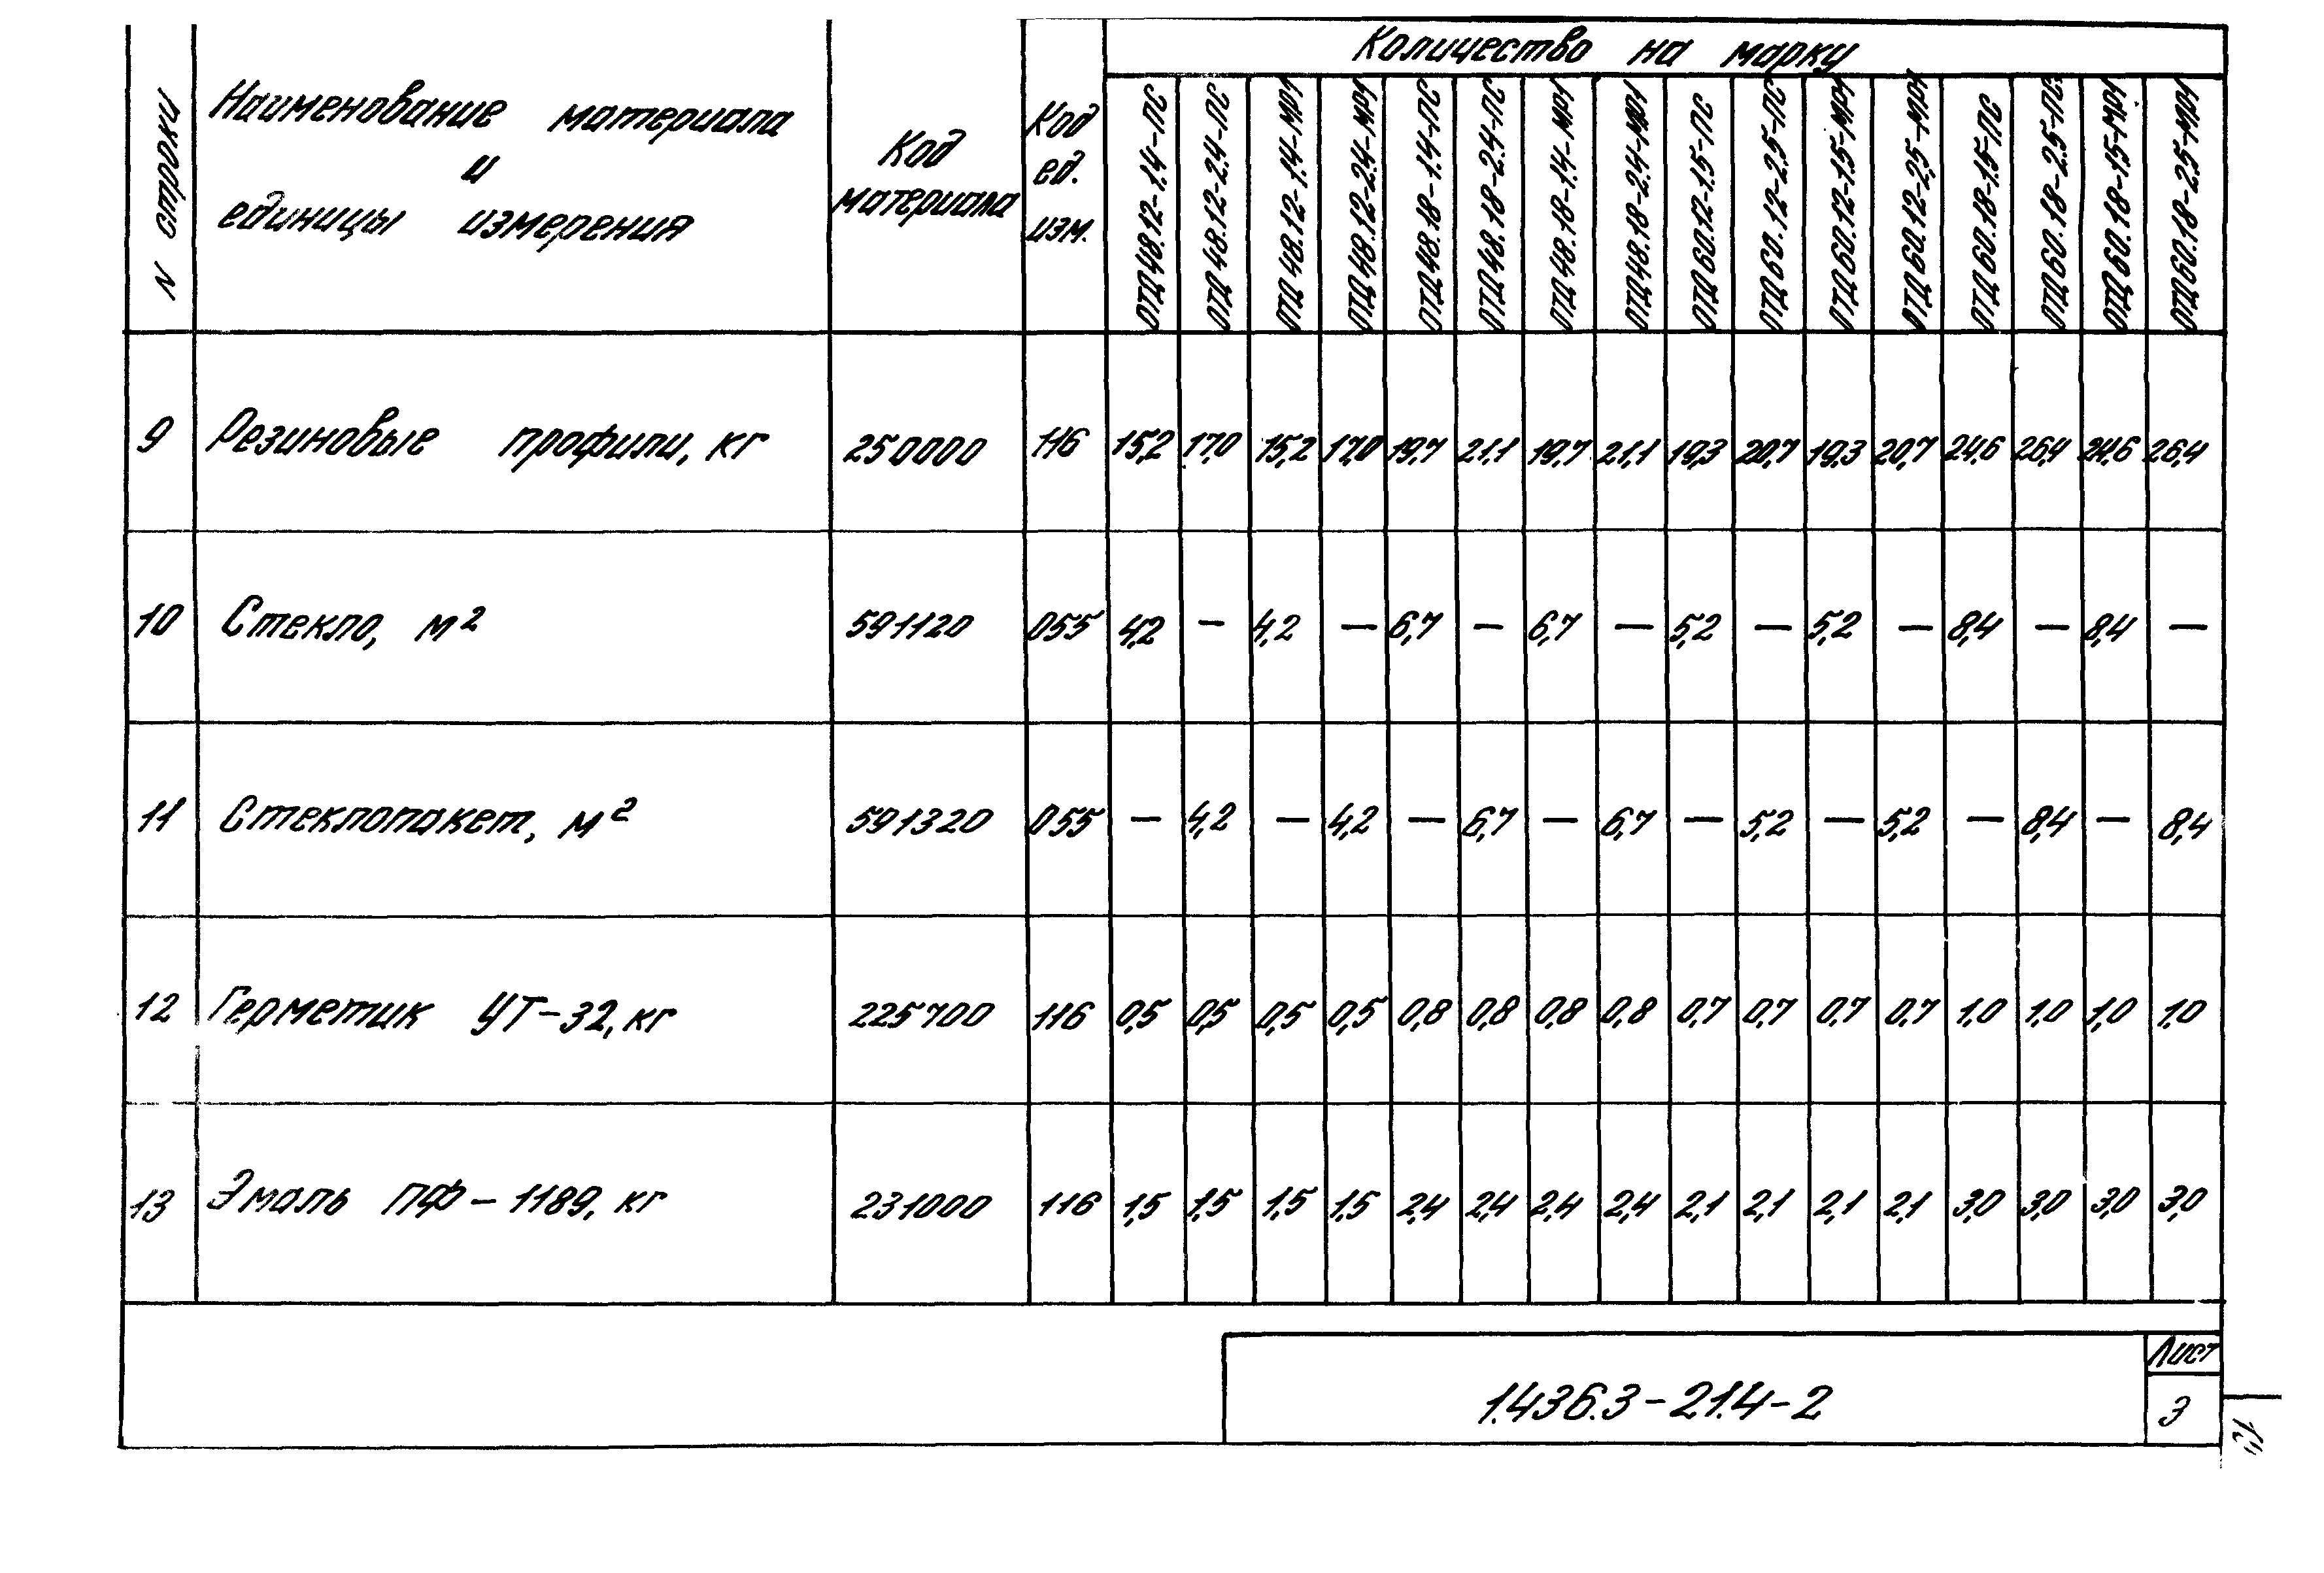 N строки
Наименование материала
и
единицы измерения
Код
материала
Код
ед.
изм.
Количество на марку
ОТД48.12-1.4-ПС
ОТД48.12-2.4-ПС
ОТД48.12-1.4-МР1
ОТД48.12-2.4-МР1
ОТД48.18-1.4-ПС
ОТД48.18-2.4-ПС
ОТД48.18-1.4-МР1
ОТД48.18-2.4-МР1
ОТД60.12-1.5-ПС
ОТД60.12-2.5-ПС
ОТД60.12-1.5-МР1
ОТД60.12-2.5-МР1
ОТД60.18-1.5-ПС
ОТД60.18-2.5-ПС
ОТД60.18-1.5-МР1
ОТД60.18-2.5-МР1
9 Резиновые профили, кг 250000 116 15,2 17,0 15,2 17,0 19,7 21,1 19,7 21,1 19,3 20,7 19,3 20,7 24,6 26,4 24,6 26,4
10 Стекло, м² 591120 055 4,2 — 4,2 — 6,7 — 6,7 — 5,2 — 5,2 — 8,4 — 8,4 —
11 Стеклопакет, м² 591320 055 — 4,2 — 4,2 — 6,7 — 6,7 — 5,2 — 5,2 — 8,4 — 8,4
12 Герметик УТ-32, кг 225700 116 0,5 0,5 0,5 0,5 0,8 0,8 0,8 0,8 0,7 0,7 0,7 0,7 1,0 1,0 1,0 1,0
13 Эмаль ПФ-1189, кг 231000 116 1,5 1,5 1,5 1,5 2,4 2,4 2,4 2,4 2,1 2,1 2,1 2,1 3,0 3,0 3,0 3,0
1.436.3-21.4-2
Лист
3